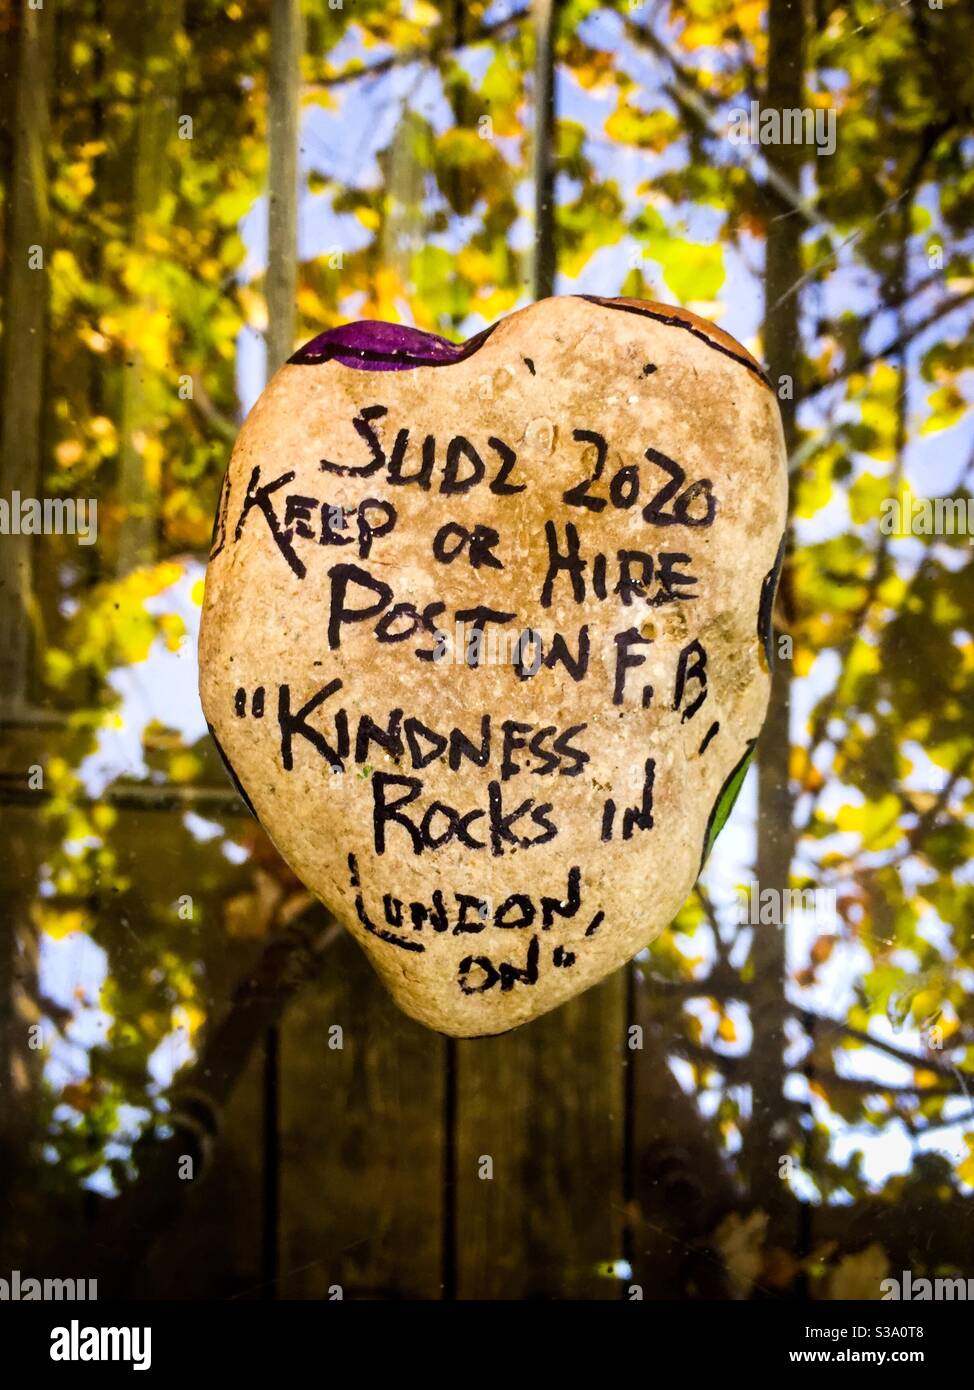 SUDZ 2020
KEEP OR HIRE
POST ON F.B,
"KINDNESS
ROCKS IN
LONDON,
ON"
alamy
alamy
Image ID: S3A0T8
www.alamy.com